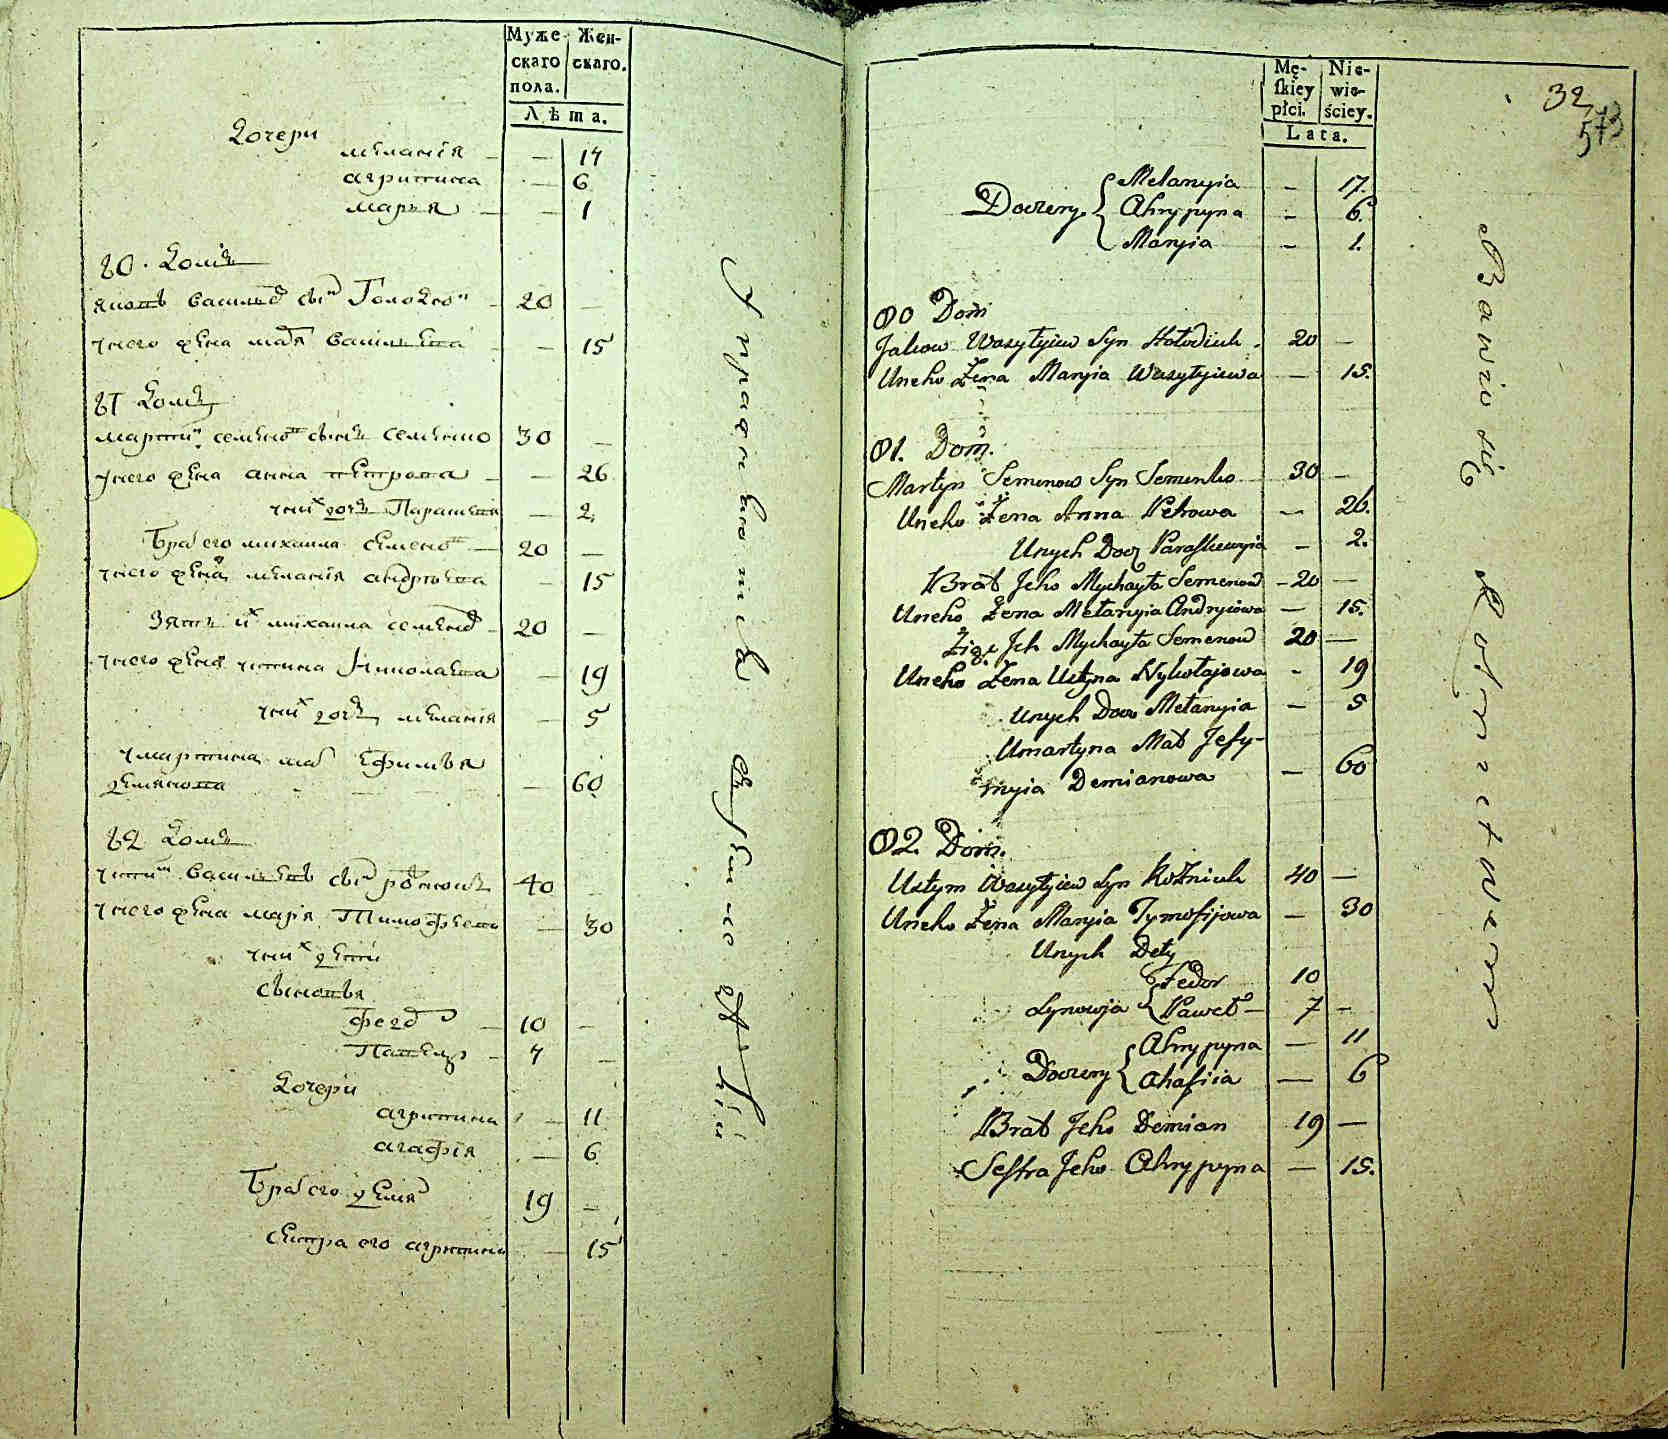 Муже-
скаго
пола.
Жен-
скаго.
Лѣта.
Дочери
меланія - - 17
агрипина - 6
марья - - 1
80. Домъ
20 -
- 15
81 Домъ
семенов сынъ Семенко 30 -
унего жена анна петрова - 26
них дочь Параскевія - 2
Брат его михаила семенов - 20 -
унего жена меланія андреева - 15
Зять их михаила семенов - 20 -
унего жена устина Николаева - 19
них дочь меланія - 5
умартина мат Ефимья
демянова - 60
82 Домъ
40 -
унего жена марія Тимофеева - 30
них дети
сыновья
федор - 10 -
Павел - 7 -
Дочери
агрипина - 11
агафія - 6
Брат его демян 19 -
сестра его агрипина - 15
Mę-
skiey
płci.
Nie-
wie-
ściey.
Lata.
32
573
Doczery { Melanyia - 17.
Ahrypyna - 6.
Maryia - 1.
80 Dom
Jakow Wasyłyiew Syn Hołodiuk. 20 -
Uneho Żena Maryia Wasyłyiewa - 15.
81. Dom.
Martyn Semenow Syn Semenko 30 -
Uneho Żena Anna Petrowa - 26.
Unych Docz Paraskewyia - 2.
Brat Jeho Mychayła Semenow - 20 -
Uneho Żena Mełanyia Andryiowa - 15.
Mychayła Semenow 20 -
Uneho Żena Ustyna Nykołajowa - 19
Unych Docz Mełanyia - 5
Umartyna Mat Jefy-
myia Demianowa - 60
82. Dom.
Ustym Wasyłyiew Syn 40 -
Uneho Żena Maryia Tymofijowa - 30
Unych Dety
Synowja { Fedor 10
Paweł - 7 -
Doczery { Ahrypyna - 11
Ahafiia - 6
Brat Jeho Demian 19 -
Sestra Jeho Ahrypyna - 15.